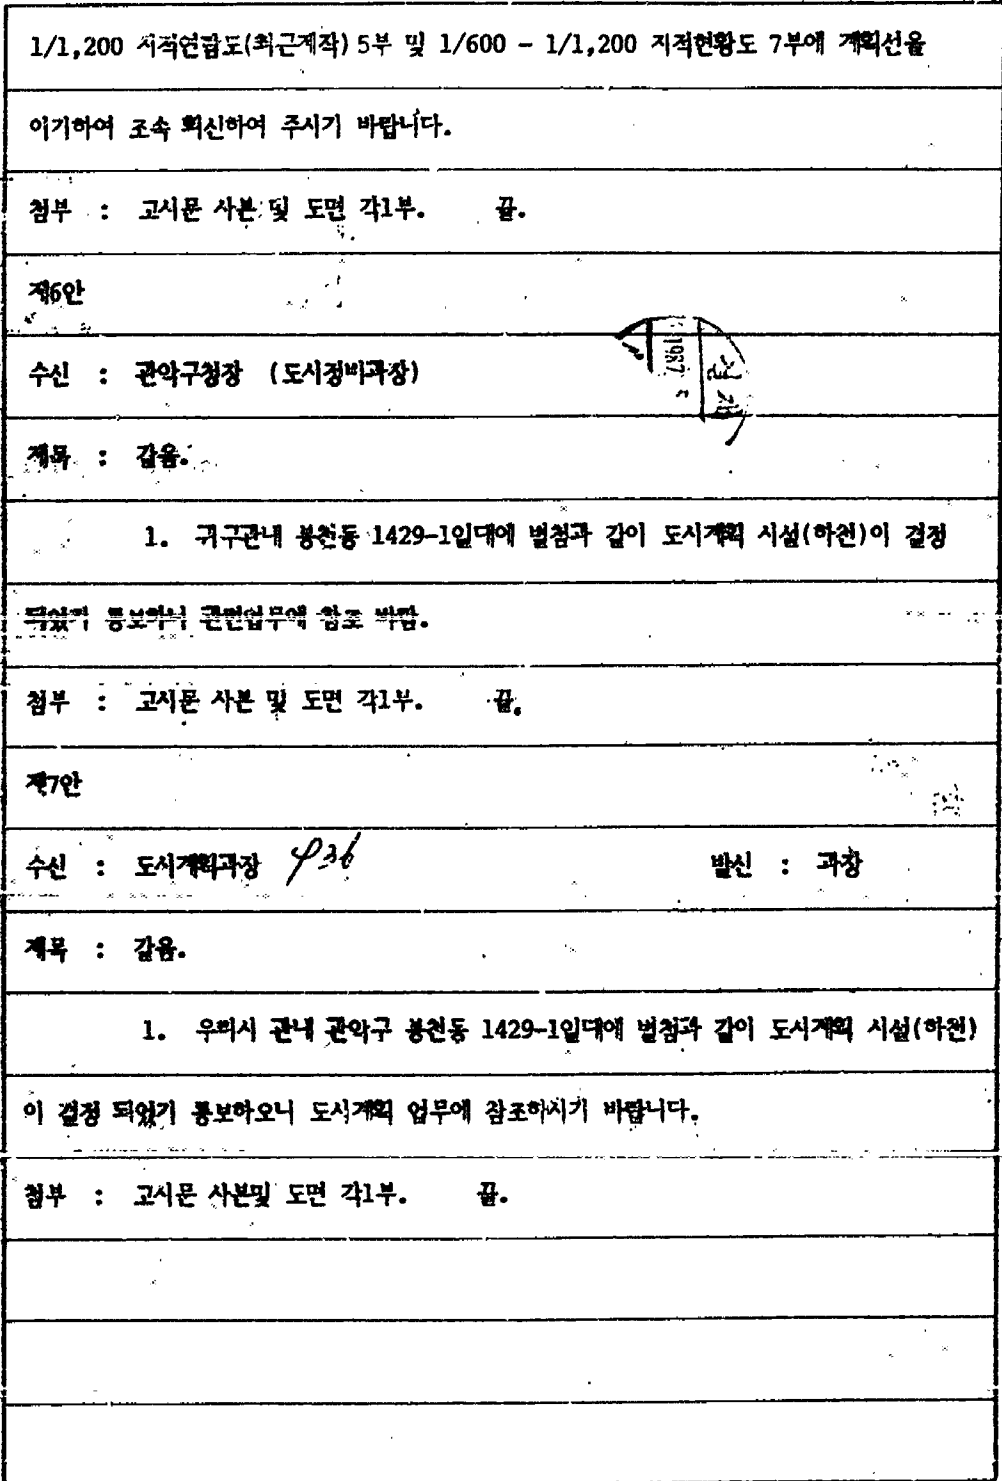 1/1,200 지적연람도(최근제작) 5부 및 1/600 - 1/1,200 지적현황도 7부에 계획선을
이기하여 조속 회신하여 주시기 바랍니다.
첨부 : 고시문 사본 및 도면 각1부. 끝.
제6안
수신 : 관악구청장 (도시정비과장)
1987
제목 : 같음.
1. 귀구관내 봉천동 1429-1일대에 별첨과 같이 도시계획 시설(하천)이 결정
되었기 통보하니 관련업무에 참조 바람.
첨부 : 고시문 사본 및 도면 각1부. 끝.
제7안
수신 : 도시계획과장 발신 : 과장
제목 : 같음.
1. 우리시 관내 관악구 봉천동 1429-1일대에 별첨과 같이 도시계획 시설(하천)
이 결정 되었기 통보하오니 도시계획 업무에 참조하시기 바랍니다.
첨부 : 고시문 사본및 도면 각1부. 끝.